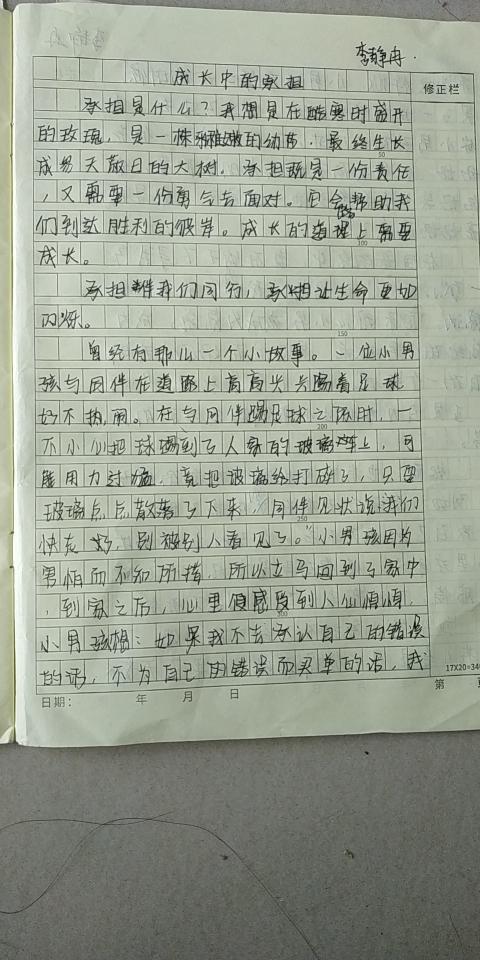 李静冉
成长中的承担
修正栏
承担是什么？我想是在酷寒时盛开
的玫瑰，是一株稚嫩的幼苗，最终生长
成为天蔽日的大树。承担既是一份责任
，又需要一份勇气去面对。它会帮助我
们到达胜利的彼岸。成长的道路上需要
成长。
承担伴我们同行，承担让生命更加
闪烁。
曾经有那么一个小故事。一位小男
孩与同伴在道路上高高兴兴踢着足球，
好不热闹。在与同伴踢足球之际时，一
不小心把球踢到了人家的玻璃上，可
能用力过猛，竟把玻璃给打碎了，只要
玻璃点点散落了下来，同伴见状说:"我们
快走，别被别人看见了。"小男孩因为
害怕而不知所措，所以立马回到了家中
，到家之后，心里很感受到人心惶惶，
小男孩想：如果我不去承认自己的错误
的话，不为自己的错误而买单的话，我
日期： 年 月 日
17X20=34
第
50
100
150
200
250